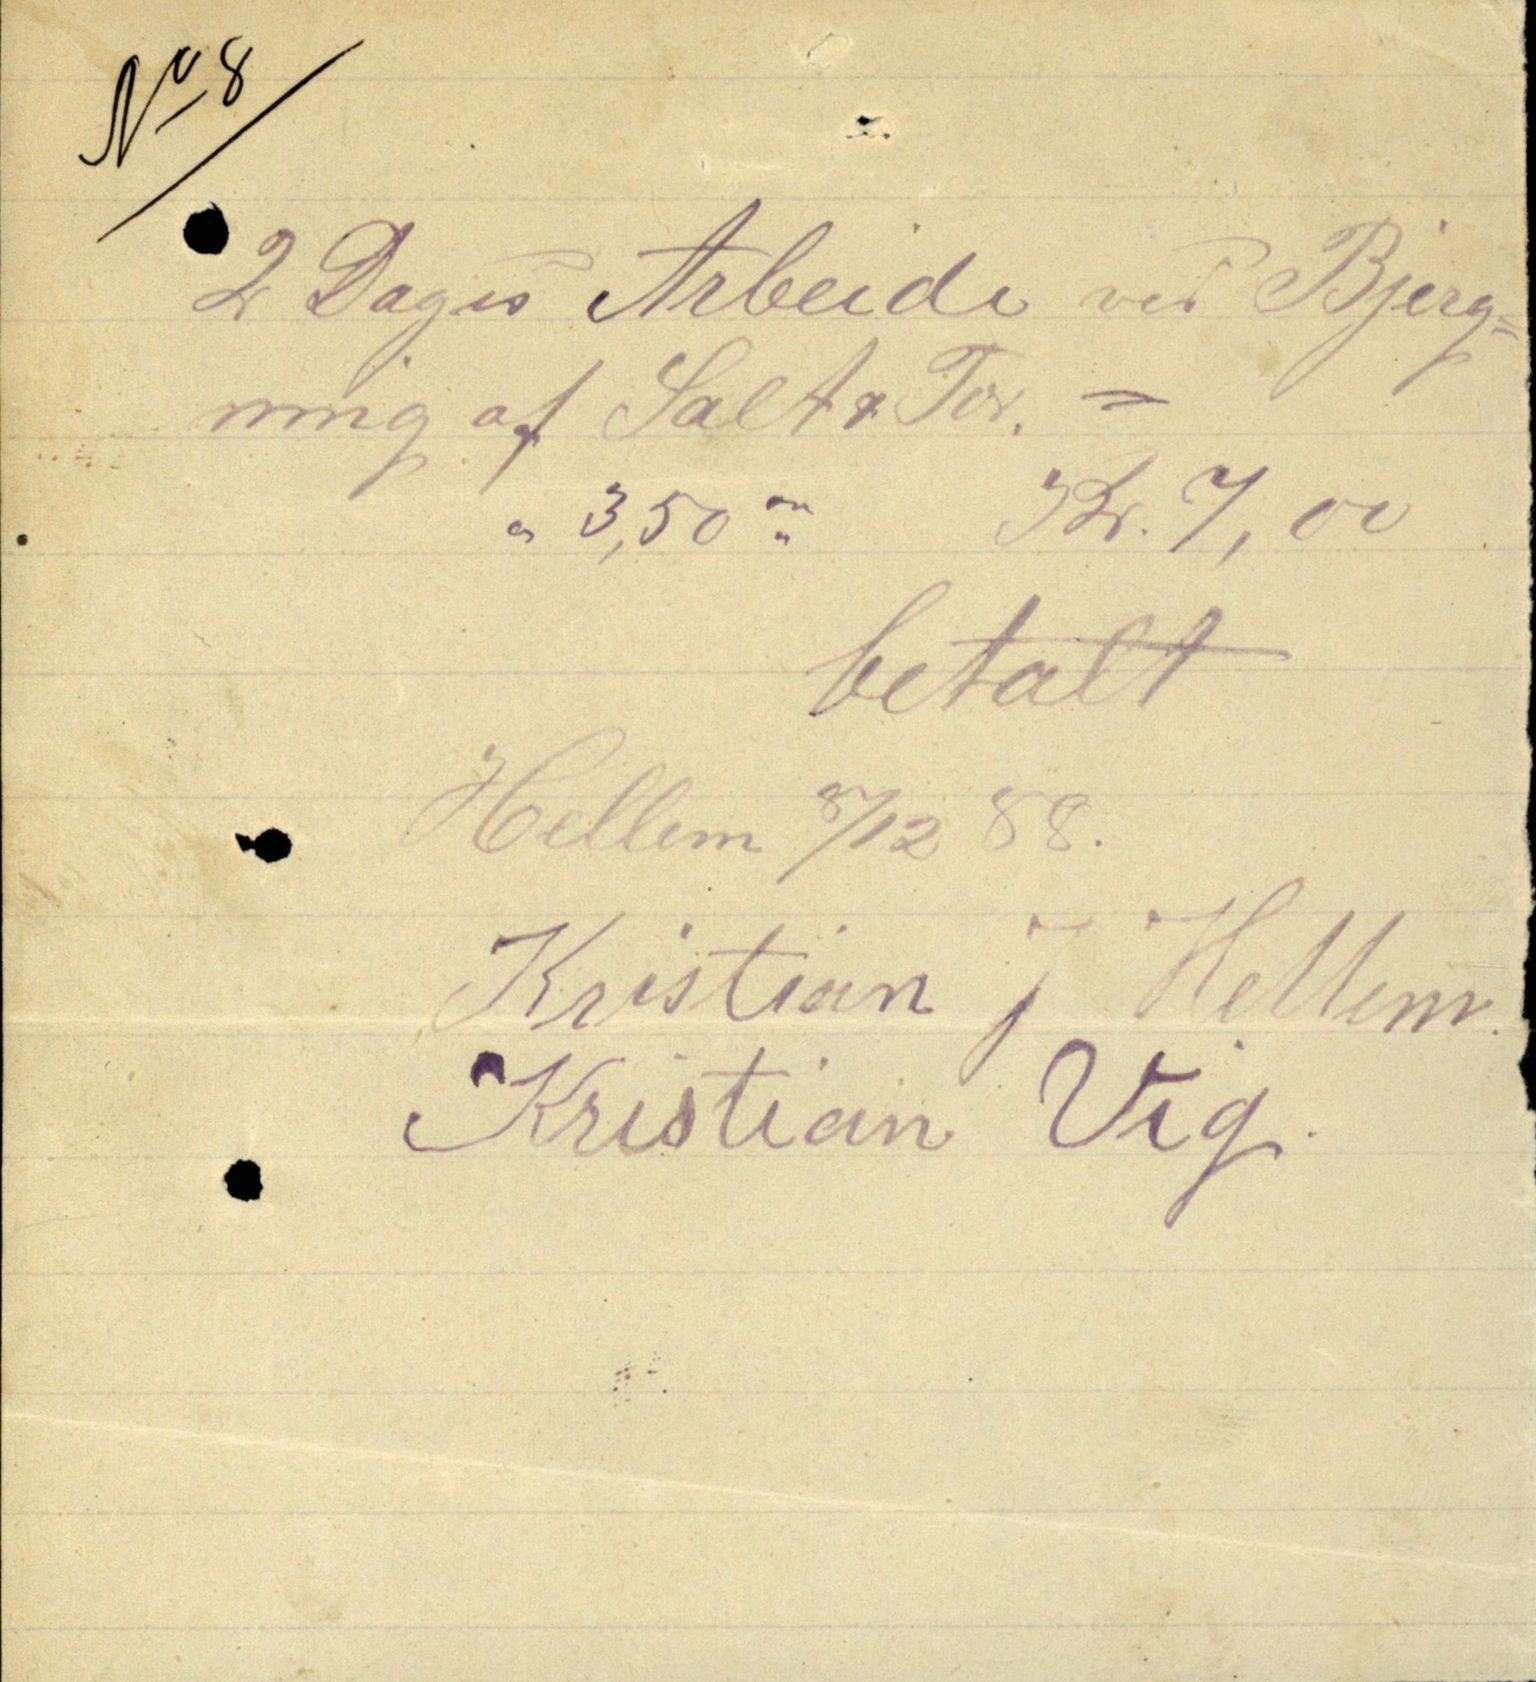 No 8
2 Dages Arbeide ved Bjerg=
ning af Salt & Tov. =
a 3,50 Kr. 7,00
betalt
Hellem 8/12 88.
Kristian J Hellem.
Kristian Vig.